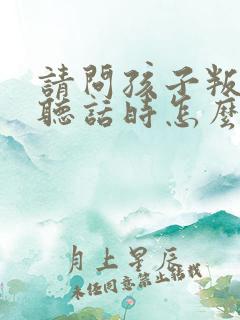 請問孩子叛
聽話時怎麼
月上星辰
未经同意禁止转载